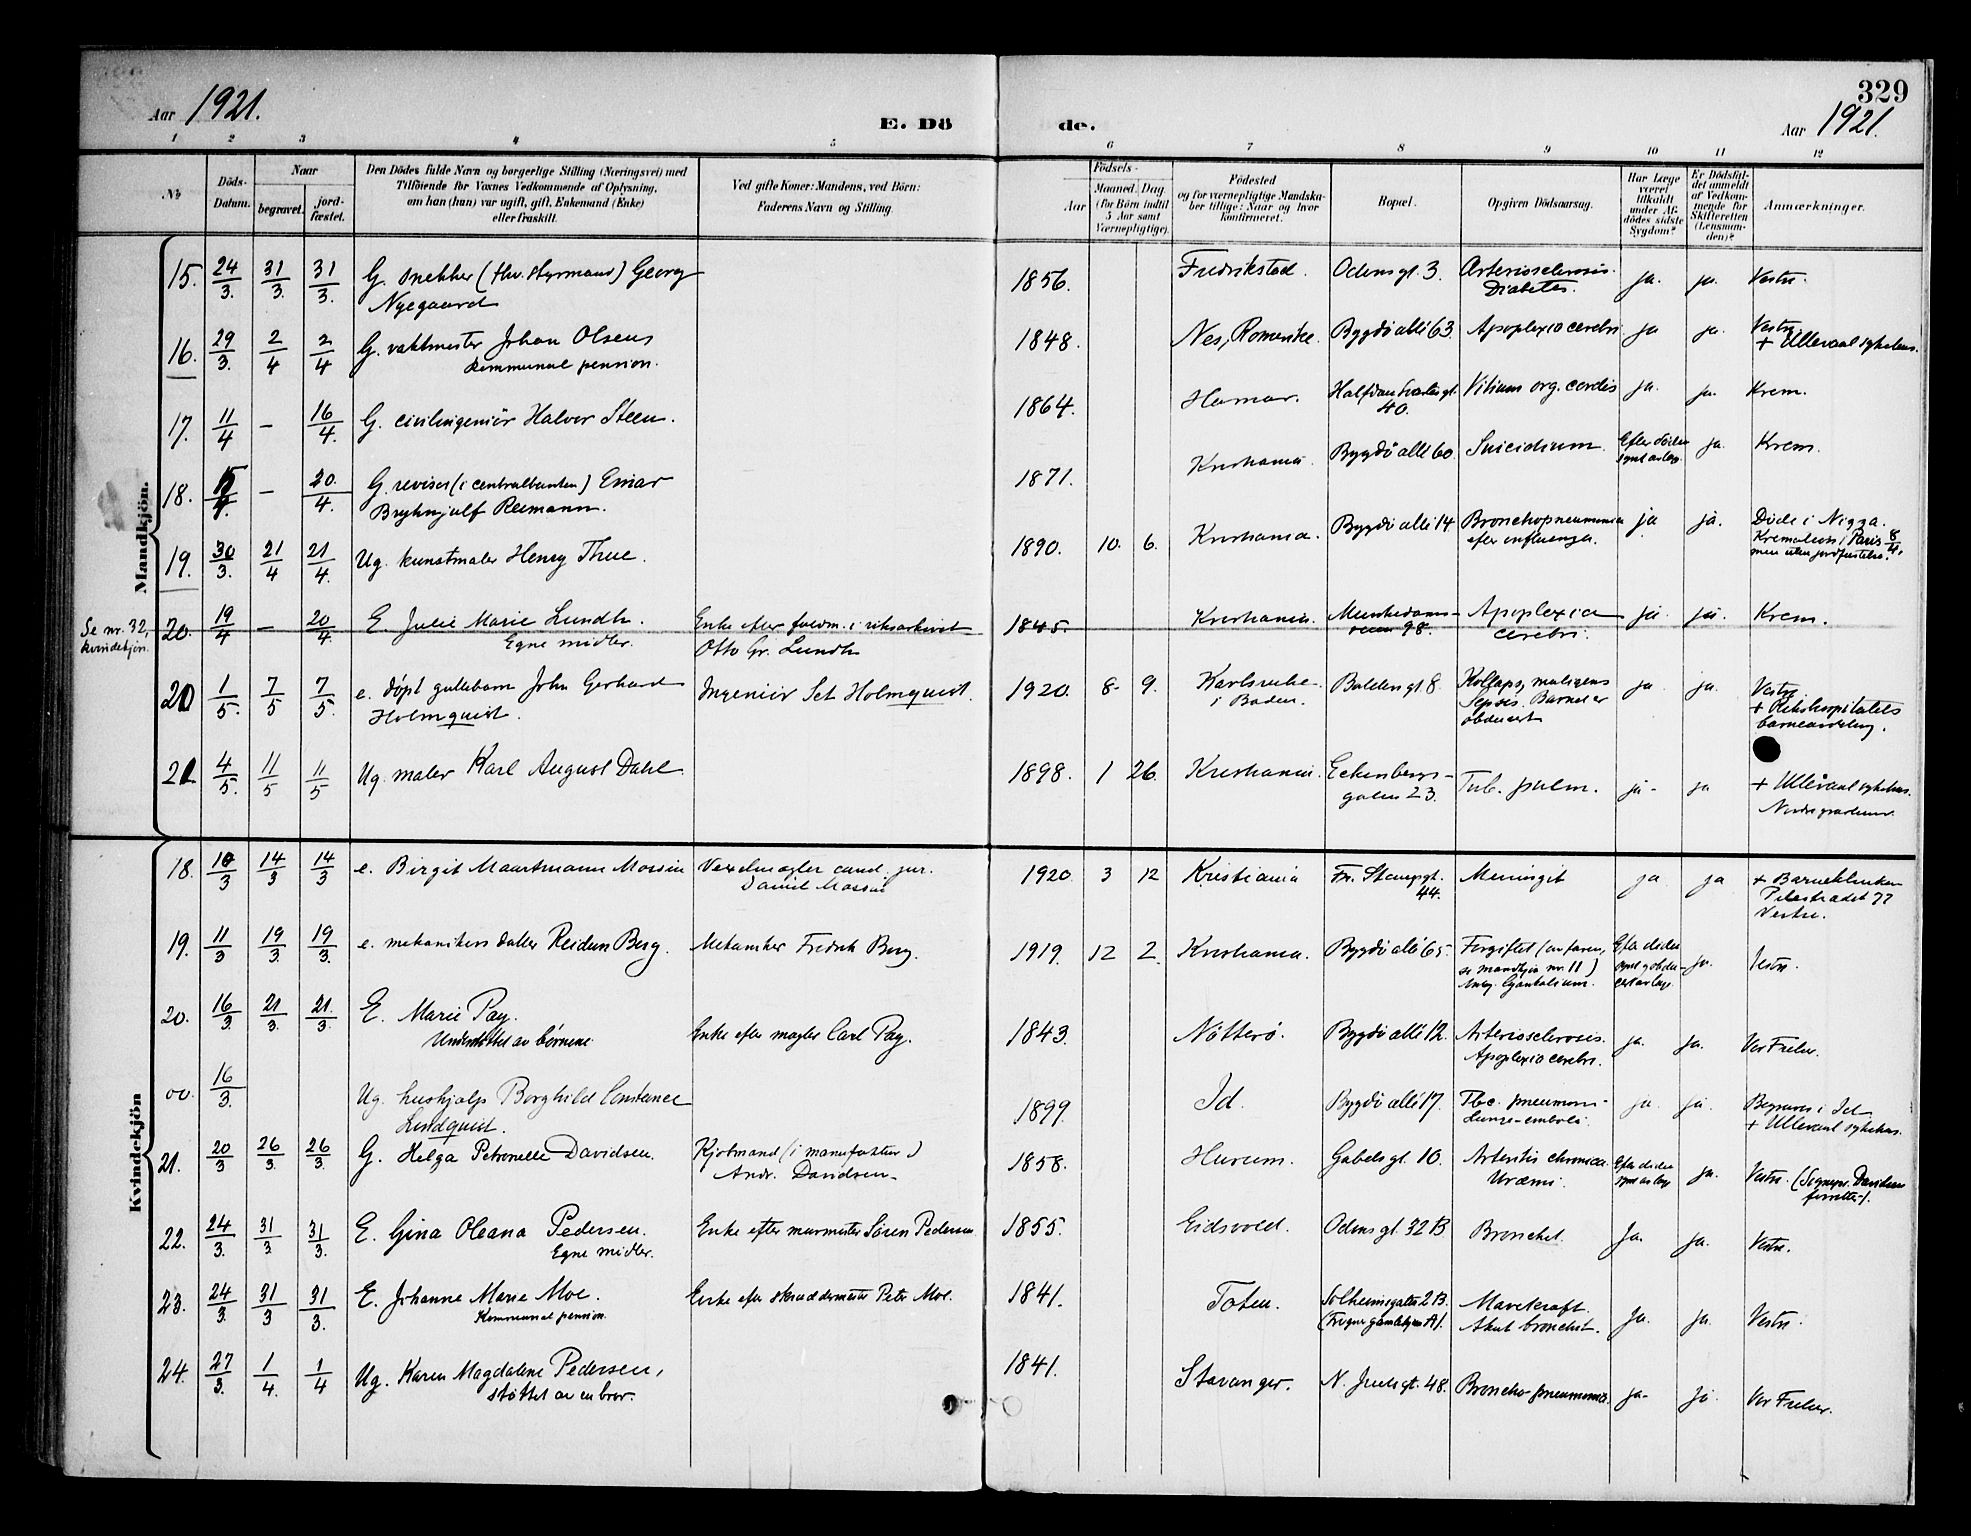 Aar 1921.
E. Dö
de.
329
Aar 1921.
1 2 3 4 5 6 7 8 9 10 11 12
No
Döds-Datum.
Naar
begravet.
jord-fæstet.
Den Dödes fulde Navn og borgerlige Stilling (Næringsvei) med
Tilföiende for Voxnes Vedkommende af Oplysning,
om han (hun) var ugift, gift, Enkemand (Enke)
eller fraskilt.
Ved gifte Koner: Mandens, ved Börn:
Faderens Navn og Stilling.
Födsels-
Aar
Maaned. Dag.
(for Börn indtil
5 Aar samt
Værnepligtige).
Födested
og for værnepligtige Mandska-
ber tillige: Naar og hvor
konfirmeret.
Bopæl.
Opgiven Dödsaarsag.
Har Læge
været
tilkaldt
under Af-
dödes sidste
Sygdom?
Er Dödsfal-
det anmeldt
af Vedkom-
mende for
Skifteretten
(Lensman-
den)?
Anmærkninger.
Mandkjön.
15. 24/3. 31/3. 31/3. G. snekker (fhv. styrmand) Georg 1856. Fredrikstad. Odinsgt. 3. Arteriosclerosis. ja. ja. Vestre.
Nygaard Diabetes.
16. 29/3. 2/4 2/4 G. vaktmester Johan Olsen 1848. Nes, Romerike. Bygdö allé 63. Apoplexio cerebri ja ja. Vestre
Kommunal pension. + Ullevaal sykehus.
17. 11/4 – 16/4. G. civilingeniör Halvor Steen. 1864. Hamar. Halfdan Svartes gt. Vitium org. cordis ja. ja. Krem.
40.
18. – 20./4. G. revisor (i centralbanken) Einar 1871. Kristiania. Bygdö allé 60. Suicidium. Efter döden ja. Krem.
Brynhjulf Reimann. synt av læge
19. 30/3. 21/4 21/4. Ug. kunstmaler Henry Thue. 1890. 10. 6. Kristiania. Bygdö allé 14. Bronchopneumonia ja ja. Döde i Nizza.
efter influenza. Kremation i Paris 8/4.
men uten jordfæstelse.
Se nr. 32, kvindekjön.
20. 19/4 – 20/4 E. Julie Marie Lundh. Enke efter fuldm. i riksarkivet 1845. Kristiania. Munkedams- Apoplexia ja ja. Krem.
Egne midler. Otto Gr. Lundh veien 98. cerebri.
20 1/5. 7/5 7/5. e. döpt guttebarn John Gerhard Ingeniör Holmquist. 1920. 8- 9. Karlsruhe Baldersgt 8 Kollaps, ja ja. Vestre
Holmquist. i Baden. Sepsis. Barnet er + Rikshospitalets
obducert barneavdeling.
21 4/5. 11/5 11/5 Ug. maler Karl August Dahl. 1898. 1 26. Kristiania. Eckersbergs- Tub. pulm. ja- ja + Ullevaal sykehus.
gaten 23. Nordre gravlund.
Kvindekjön
18. 10/3 14/3 14/3 e. Birgit Maartmann Vexelmægler cand. jur. 1920. 3 12 Kristiania Fr. Stangsgt. Meningit ja ja + Barneklinikken
Daniel 44. Pilestrædet 77
Vestre.
19. 11/3 19/3. 19/3. e. mekanikers datter Reidun Berg. Mekaniker Fredrik Berg. 1919. 12 2. Kristiania. Bygdö allé 65. Forgiftet (av faren, Efter döden ja. Vestre.
se mandkjön nr. 11)
20. 16/3 21/3. 21./3. E. Marie Pay. Enke efter mægler Carl Pay. 1843. Nötterö. Bygdö allé 12. Arteriosclerosis. ja. ja. Vor Frelser.
Understöttet av börnene. Apoplexio cerebri.
00. 16/3. Ug. hushjælp Borghild Constance 1899. Id. Bygdö allé 17. Tbc. pneumoni- ja. ja. Begraves i Id
Lindquist. Lunge-emboli. + Ullevaal sykehus.
21. 20/3 26/3. 26/3. G. Helga Petronelle Davidsen. Kjöbmand (i manufaktur) 1858. Hurum. Gabels gt. 10. Arteritis chronica. Efter döden ja. Vestre. (Sogneprest Davidsen
Andr. Davidsen. Uræmi. synt av læge forrettet).
22. 24/3. 31/3 31/3. E. Gina Oleana Pedersen. Enke efter murmester Sören Pedersen 1855. Eidsvold. Odinsgt. 32 B Bronchit. Ja. ja. Vestre.
Egne midler.
23. 24/3 31/3 31/3. E. Johanne Marie Moe. Enke efter skræddermester Peter Moe. 1841. Toten. Solheimsgaten 2 B. Mavekræft. Ja. ja. Vestre.
Kommunal pension. (Frogner gamlehjem A). Akut bronchit.
24. 27/3. 1/4. 1/4 Ug. Karen Magdalene Pedersen, 1841. Stavanger. N. Juels gt. 48. Bronchopneumonia. ja- ja. Vor Frelser.
stöttet av en bror.